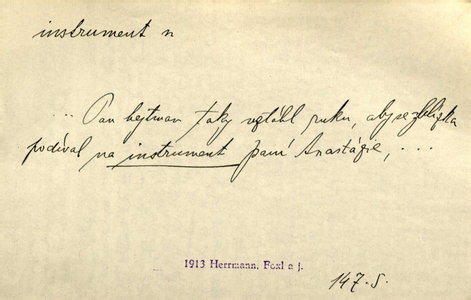 instrument n
... Pan hejtman taky vztáhl ruku, aby se zblízka
podíval na instrument paní Anastázie, ...
1913 Herrmann, Foxl a j.
147. S.